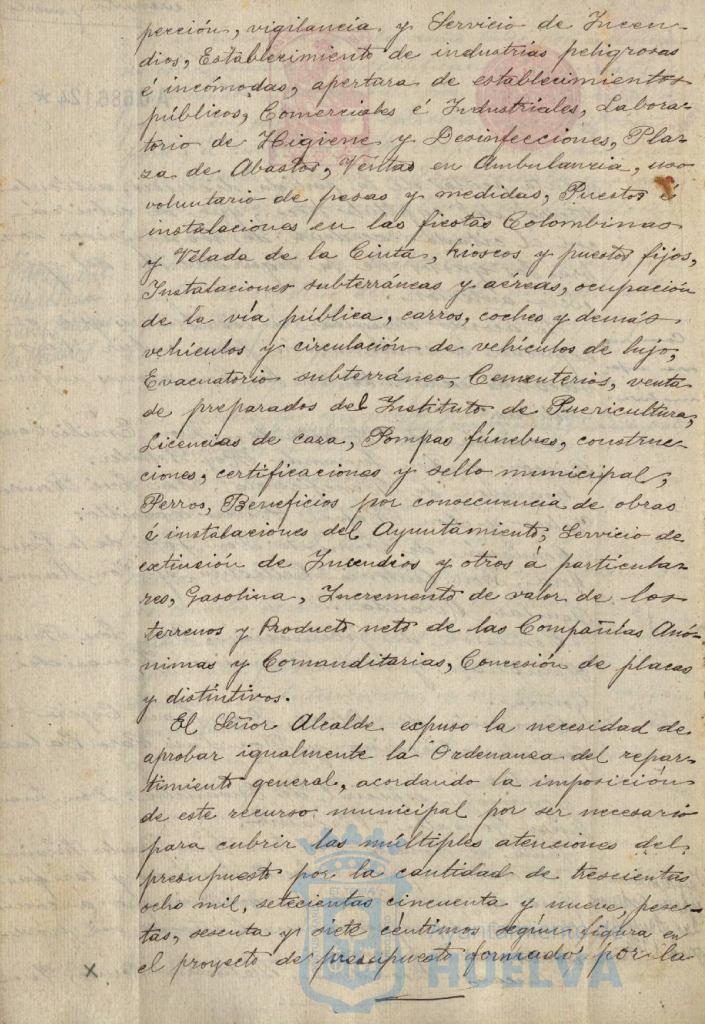 pección, vigilancia y Servicio de Incen-
dios, Establecimiento de industrias peligrosas
é incómodas, apertura de establecimientos
públicos, Comerciales é Industriales, Labora-
torio de Higiene y Desinfecciones, Pla-
za de Abastos, Ventas en Ambulancia, uso
voluntario de pesas y medidas, Puestos é
instalaciones en las fiestas Colombinas
y Velada de la Cinta, kioscos y puestos fijos,
Instalaciones subterráneas y aéreas, ocupación
de la vía pública, carros, coches y demás
vehículos y circulación de vehículos de lujo,
Evacuatorio subterráneo, Cementerios, venta
de preparados del Instituto de Puericultura,
Licencias de caza, Pompas fúnebres, construc-
ciones, certificaciones y sello municipal,
Perros, Beneficios por consecuencia de obras
é instalaciones del Ayuntamiento, Servicio de
extinsión de Incendios y otros á particula-
res, Gasolina, Incremento de valor de los
terrenos y Producto neto de las Compañías Anó-
nimas y Comanditarias, Concesión de placas
y distintivos.
El Señor Alcalde expuso la necesidad de
aprobar igualmente la Ordenanza del repar-
timiento general, acordando la imposición
de este recurso municipal por ser necesario
para cubrir las múltiples atenciones del
presupuesto por la cantidad de trescientas
ocho mil, setecientas cincuenta y nueve, pese-
tas, sesenta y siete céntimos según figura en
el proyecto de presupuesto formado por la
HUELVA